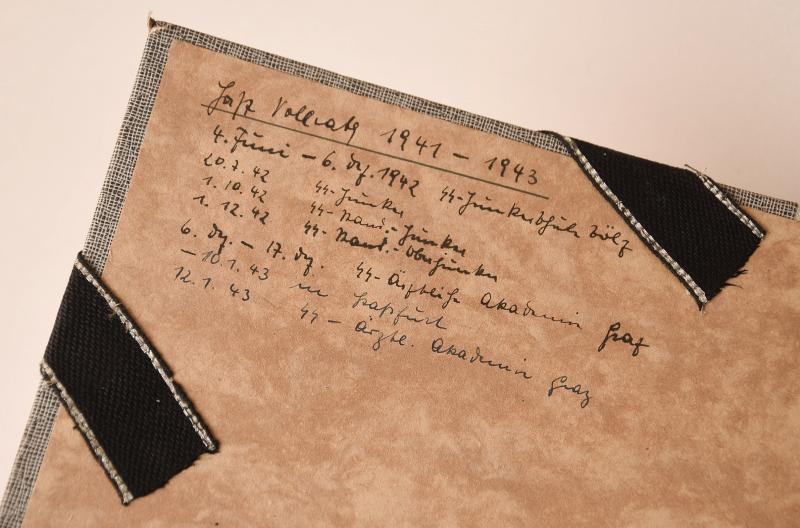 1941 – 1943
4. Juni – 6. Dez. 1942 SS-Junkerschule Tölz
20.7.42 SS-Junker
1.10.42 SS-Stand.-Junker
1.12.42 SS-Stand.-Oberjunker
6. Dez. – 17. Dez. SS-Ärztliche Akademie Graz
– 10.1.43 in
12.1.43 SS-Ärztl. Akademie Graz